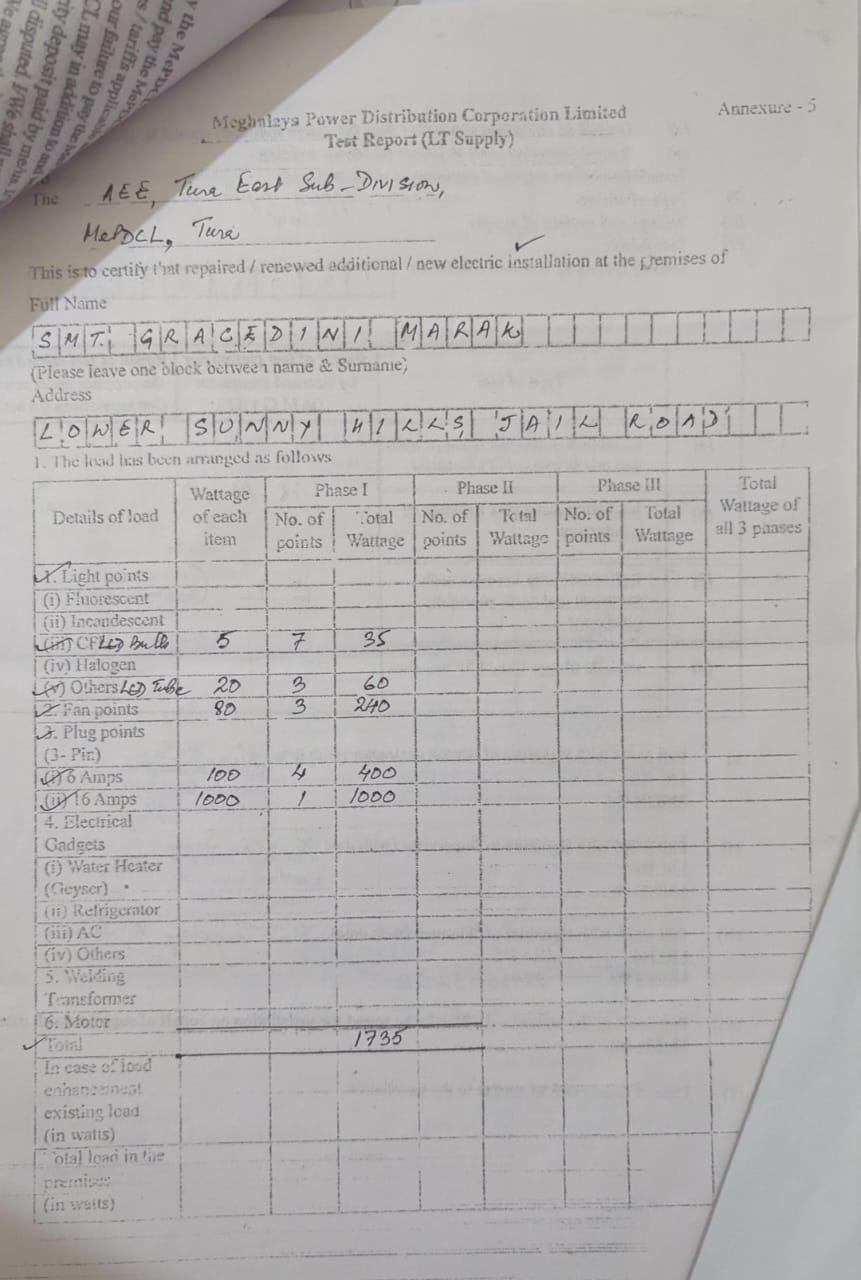 Annexure - 5
Meghalaya Power Distribution Corporation Limited
Test Report (LT Supply)
The AEE, Tura East Sub-Division,
MePDCL, Tura
This is to certify that repaired / renewed additional / new electric installation at the premises of
Full Name
SMT. GRACEDINI MARAK
(Please leave one block between name & Surname)
Address
LOWER SUNNY HILLS JAIL ROAD
1. The load has been arranged as follows
Details of load Wattage of each item Phase I Phase II Phase III Total Wattage of all 3 phases
No. of points Total Wattage No. of points Total Wattage No. of points Total Wattage
1. Light points
(i) Fluorescent
(ii) Incandescent
(iii) CF LED Bulb 5 7 35
(iv) Halogen
(v) Others LED Tube 20 3 60
2. Fan points 80 3 240
3. Plug points
(3- Pin)
(i) 6 Amps 100 4 400
(ii) 16 Amps 1000 1 1000
4. Electrical
Gadgets
(i) Water Heater
(Geyser)
(ii) Refrigerator
(iii) AC
(iv) Others
5. Welding
Transformer
6. Motor
Total 1735
In case of load
enhancement
existing load
(in watts)
Total load in the
premises
(in watts)